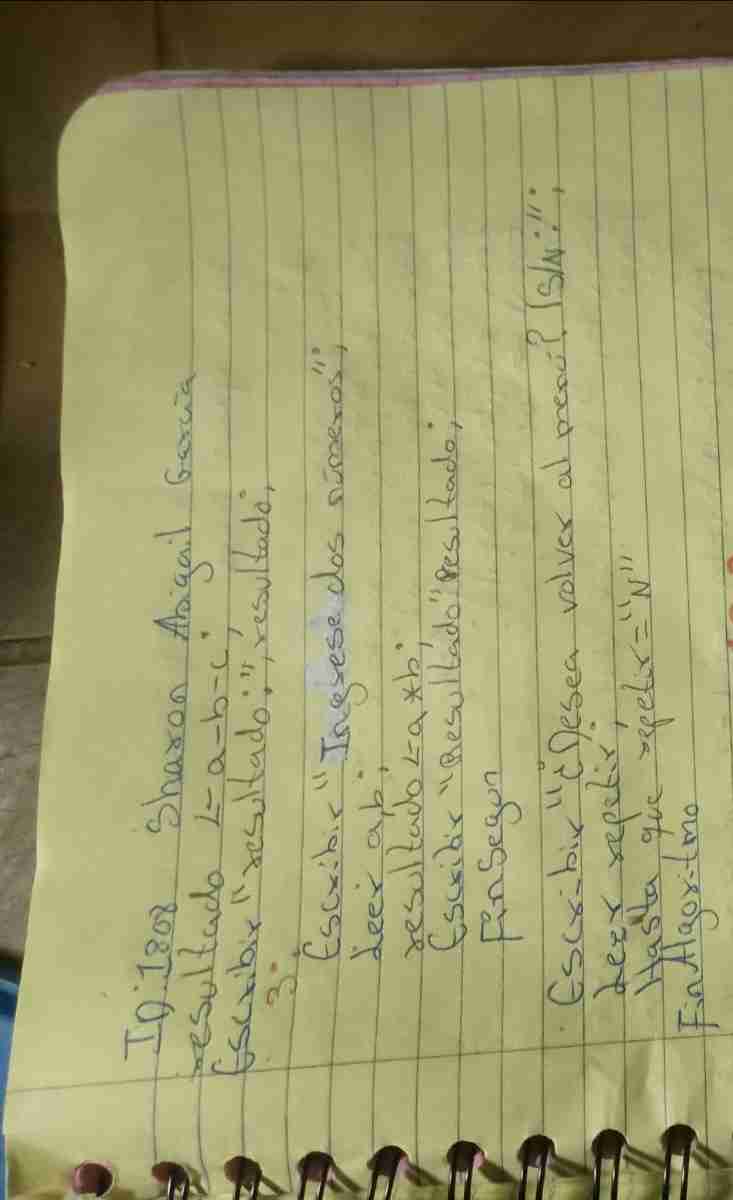 ID:1808 Sharon Abigail García
resultado <- a-b-c;
Escribir "resultado:", resultado;
3:
Escribir "Ingrese dos números";
Leer a,b;
resultado <- a*b;
Escribir "Resultado" Resultado;
FinSegun
Escribir "¿Desea volver al menú? (S/N:";
Leer repetir;
Hasta que repetir="N"
FinAlgoritmo